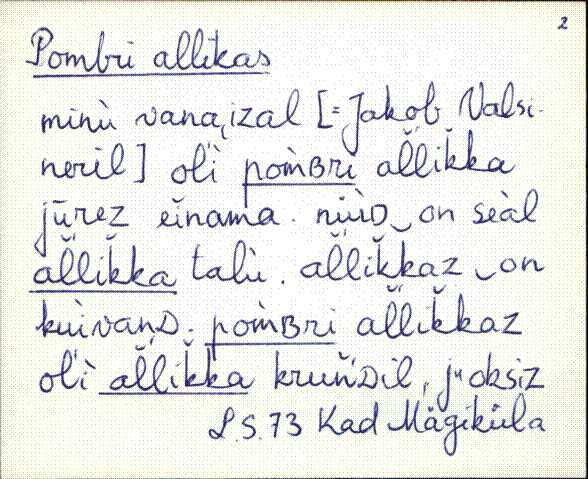 2
Pombri allikas
minù vanaizal [= Jakob Valsi-
neril] oĺì pom̀ʙri aľľik̆ka
jūrez eĭnama. nǜüᴅ‿on seàl
aľľik̆ka talù. aľľik̆kaz‿on
kuìvanᴅ. pom̀ʙri aľľik̆kaz
oĺì aľľik̆ka kruńᴅil, juoksiz
L.S. 73 Kad Mägiküla